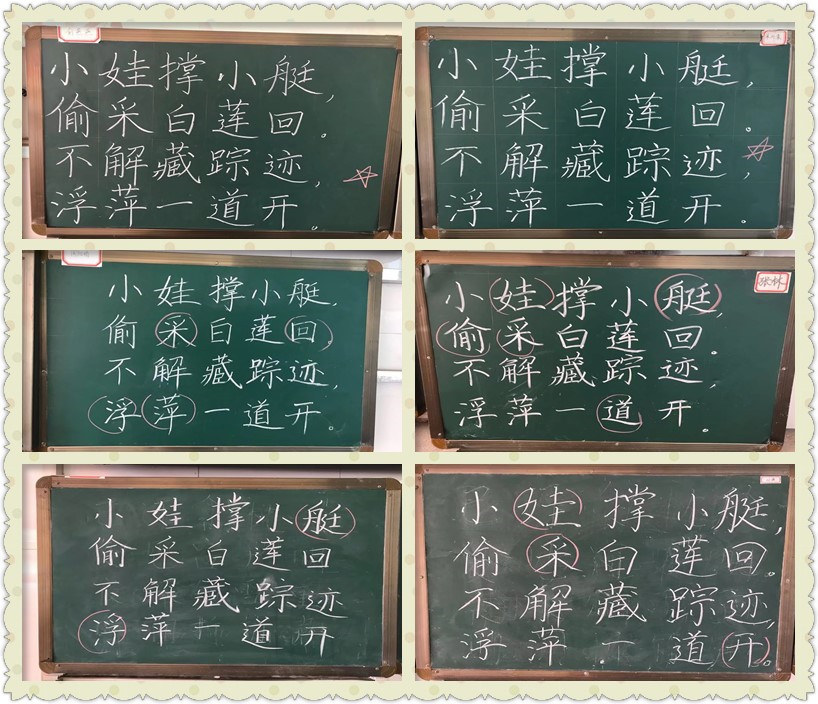 小娃撑小艇，
偷采白莲回。
不解藏踪迹，
浮萍一道开。
小娃撑小艇，
偷采白莲回。
不解藏踪迹，
浮萍一道开。
小娃撑小艇，
偷采白莲回。
不解藏踪迹，
浮萍一道开。
张林
小娃撑小艇，
偷采白莲回。
不解藏踪迹，
浮萍一道开。
小娃撑小艇
偷采白莲回
不解藏踪迹
浮萍一道开
小娃撑小艇，
偷采白莲回。
不解藏踪迹，
浮萍一道开。